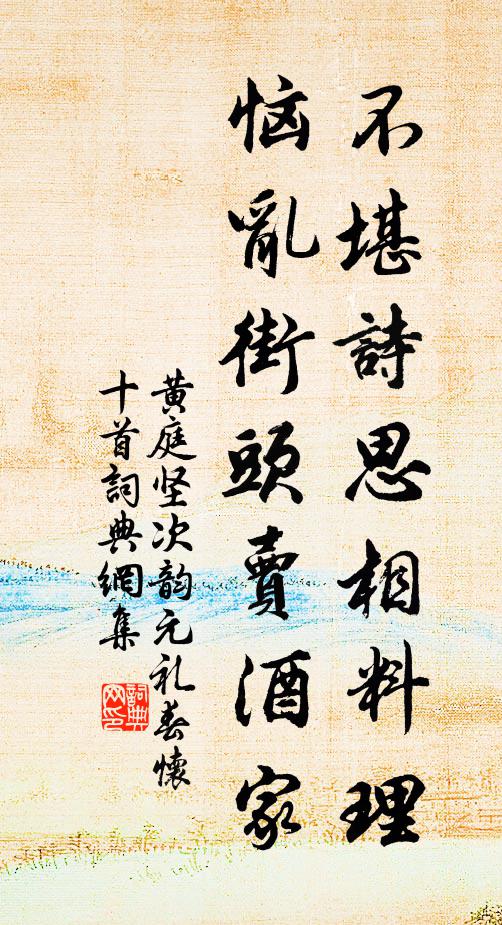 不堪詩思相料理
恼亂街頭賣酒家
黄庭坚次韵元礼春懷
十首詞典網集
詞典
网印